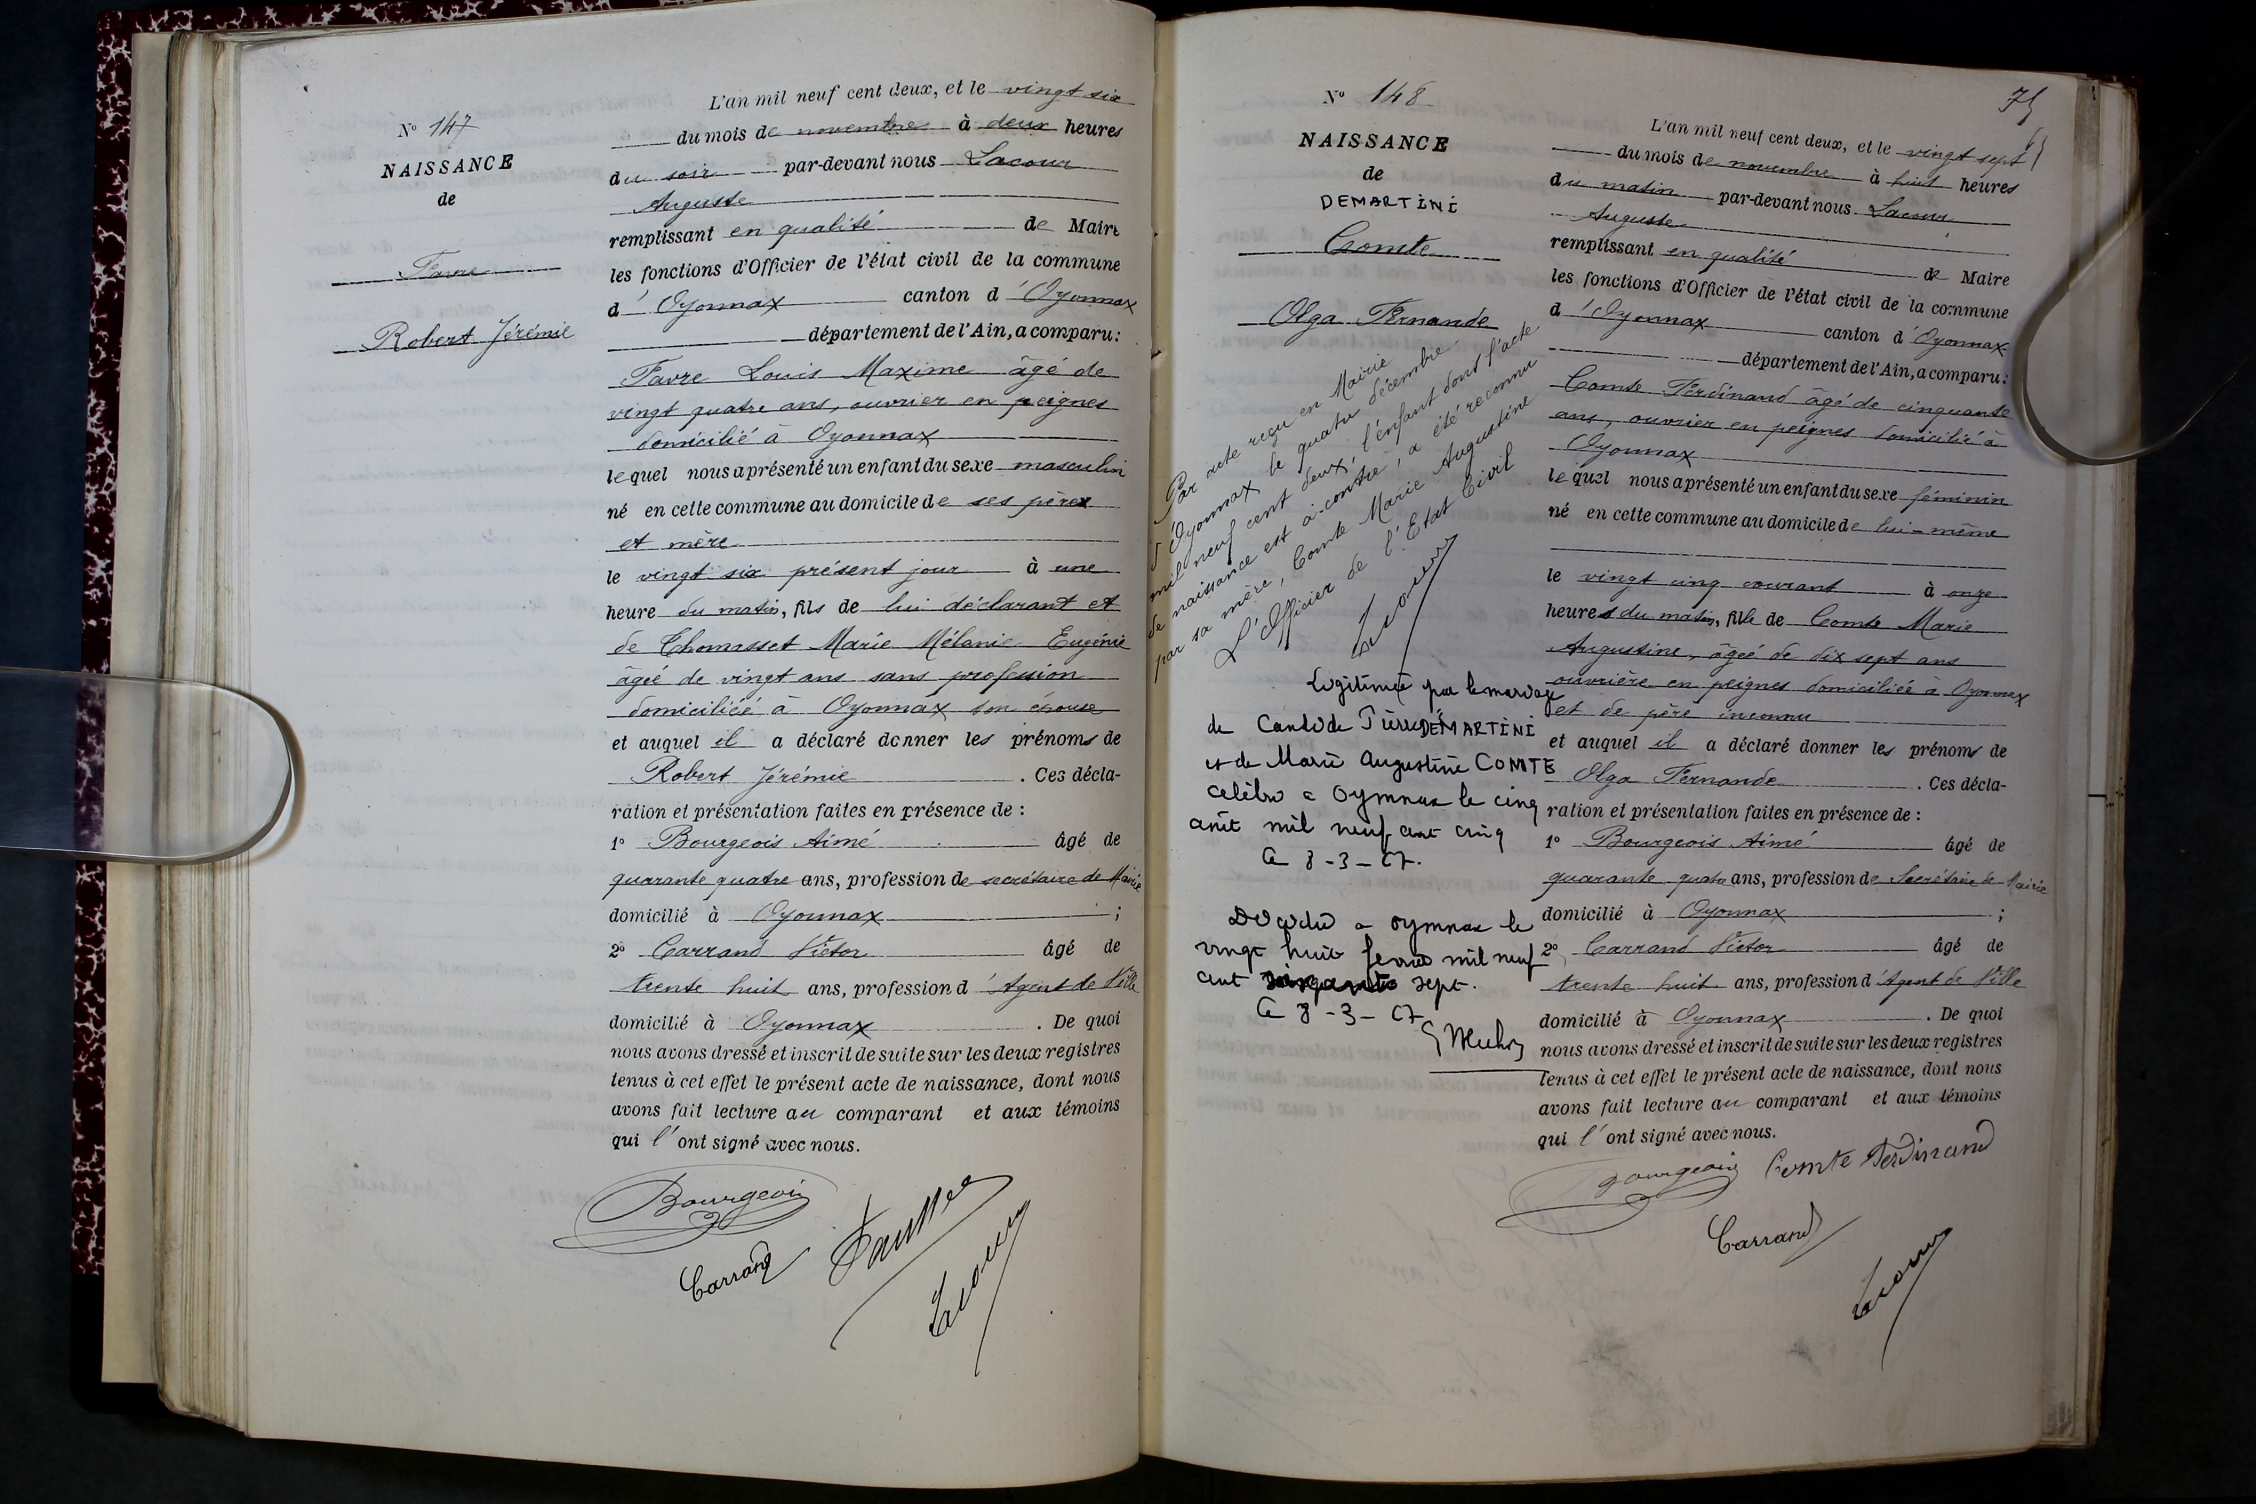 N° 147
NAISSANCE
de
Favre
Robert Jérémie
L'an mil neuf cent deux, et le vingt six
du mois de novembre à deux heures
du soir par-devant nous Lacour
Auguste
remplissant en qualité de Maire
les fonctions d'Officier de l'état civil de la commune
d'Oyonnax canton d'Oyonnax
département de l'Ain, a comparu:
Favre Louis Maxime âgé de
vingt quatre ans, ouvrier en peignes
domicilié à Oyonnax
lequel nous a présenté un enfant du sexe masculin
né en cette commune au domicile de ses père
et mère
le vingt six présent jour à une
heure du matin, fils de lui déclarant et
de Thomasset Marie Mélanie Eugénie
âgée de vingt ans sans profession
domiciliée à Oyonnax son épouse
et auquel il a déclaré donner les prénoms de
Robert Jérémie. Ces décla-
ration et présentation faites en présence de :
1° Bourgeois Aimé âgé de
quarante quatre ans, profession de secrétaire de Mairie
domicilié à Oyonnax ;
2° Carrand Victor âgé de
trente huit ans, profession d'Agent de Ville
domicilié à Oyonnax. De quoi
nous avons dressé et inscrit de suite sur les deux registres
tenus à cet effet le présent acte de naissance, dont nous
avons fait lecture au comparant et aux témoins
qui l'ont signé avec nous.
Bourgeois
Carrand
Lacour
75
N° 148
NAISSANCE
de
DEMARTINI
Comte
Olga Fernande
Par acte reçu en Mairie
d'Oyonnax le quatre décembre
mil neuf cent deux, l'enfant dont l'acte
de naissance est ci-contre, a été reconnu
par sa mère, Comte Marie Augustine
L'Officier de l'Etat Civil
Lacour
Légitimée par le mariage
de Candide Pierre DEMARTINI
et de Marie Augustine COMTE
célébré à Oyonnax le cinq
août mil neuf cent cinq
Le 8-3-67.
Décédée à Oyonnax le
vingt huit février mil neuf
cent soixante sept.
Le 8-3-67
L'an mil neuf cent deux, et le vingt sept
du mois de novembre à huit heures
du matin par-devant nous Lacour
Auguste
remplissant en qualité de Maire
les fonctions d'Officier de l'état civil de la commune
d'Oyonnax canton d'Oyonnax
département de l'Ain, a comparu:
Comte Ferdinand âgé de cinquante
ans, ouvrier en peignes domicilié à
Oyonnax
lequel nous a présenté un enfant du sexe féminin
né en cette commune au domicile de lui-même
le vingt cinq courant à onze
heures du matin, fille de Comte Marie
Augustine, âgée de dix sept ans
ouvrière en peignes domiciliée à Oyonnax
et de père inconnu
et auquel il a déclaré donner les prénoms de
Olga Fernande. Ces décla-
ration et présentation faites en présence de :
1° Bourgeois Aimé âgé de
quarante quatre ans, profession de Secrétaire de Mairie
domicilié à Oyonnax ;
2° Carrand Victor âgé de
trente huit ans, profession d'Agent de Ville
domicilié à Oyonnax. De quoi
nous avons dressé et inscrit de suite sur les deux registres
tenus à cet effet le présent acte de naissance, dont nous
avons fait lecture au comparant et aux témoins
qui l'ont signé avec nous.
Bourgeois Comte Ferdinand
Carrand
Lacour